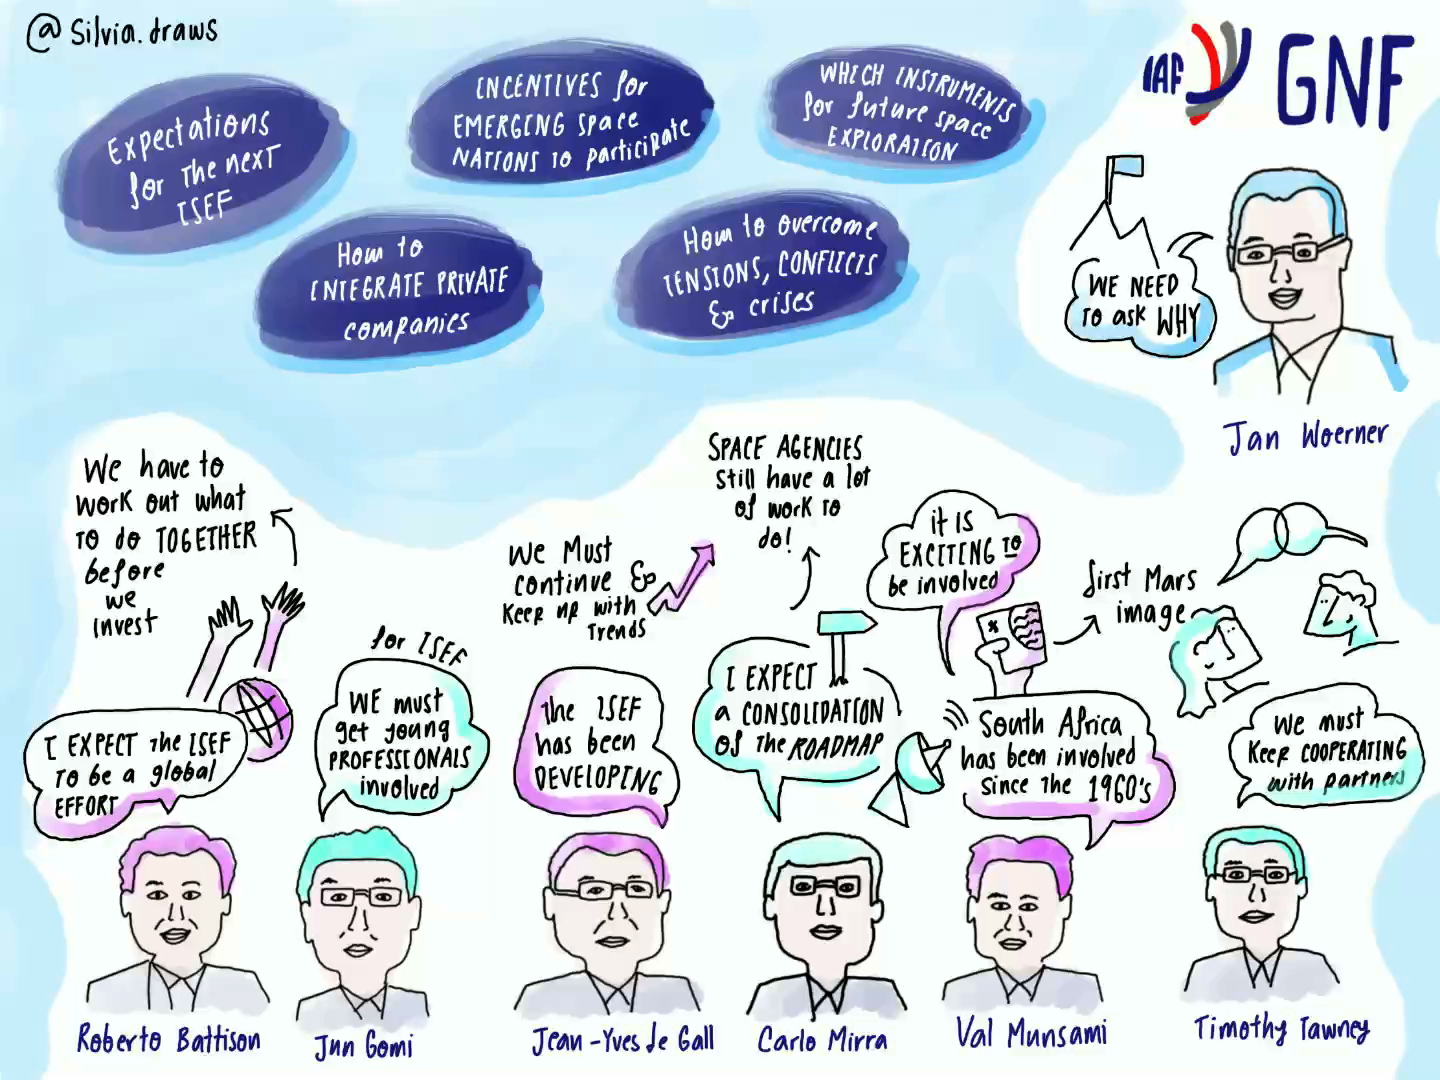 @ Silvia.draws
IAF GNF
Expectations
for The next
ISEF
INCENTIVES for
EMERGING space
NATIONS to participate
WHICH INSTRUMENTS
for future space
EXPLORATION
How to
INTEGRATE PRIVATE
companies
How to overcome
TENSIONS, CONFLICTS
& crises
WE NEED
TO ask WHY
Jan Woerner
We have to
work out what
TO do TOGETHER
before
we
invest
I EXPECT The ISEF
TO be a global
EFFORT
Roberto Battison
for ISEF
WE must
get young
PROFESSIONALS
involved
Jun Gomi
We Must
continue &
Keep up with
Trends
The ISEF
has been
DEVELOPING
Jean-Yves le Gall
SPACE AGENCIES
still have a lot
of work to
do!
I EXPECT
a CONSOLIDATION
of The ROADMAP
Carlo Mirra
it IS
EXCITING TO
be involved
first Mars
image
South Africa
has been involved
since the 1960's
Val Munsami
We must
Keep COOPERATING
with partners
Timothy Tawney